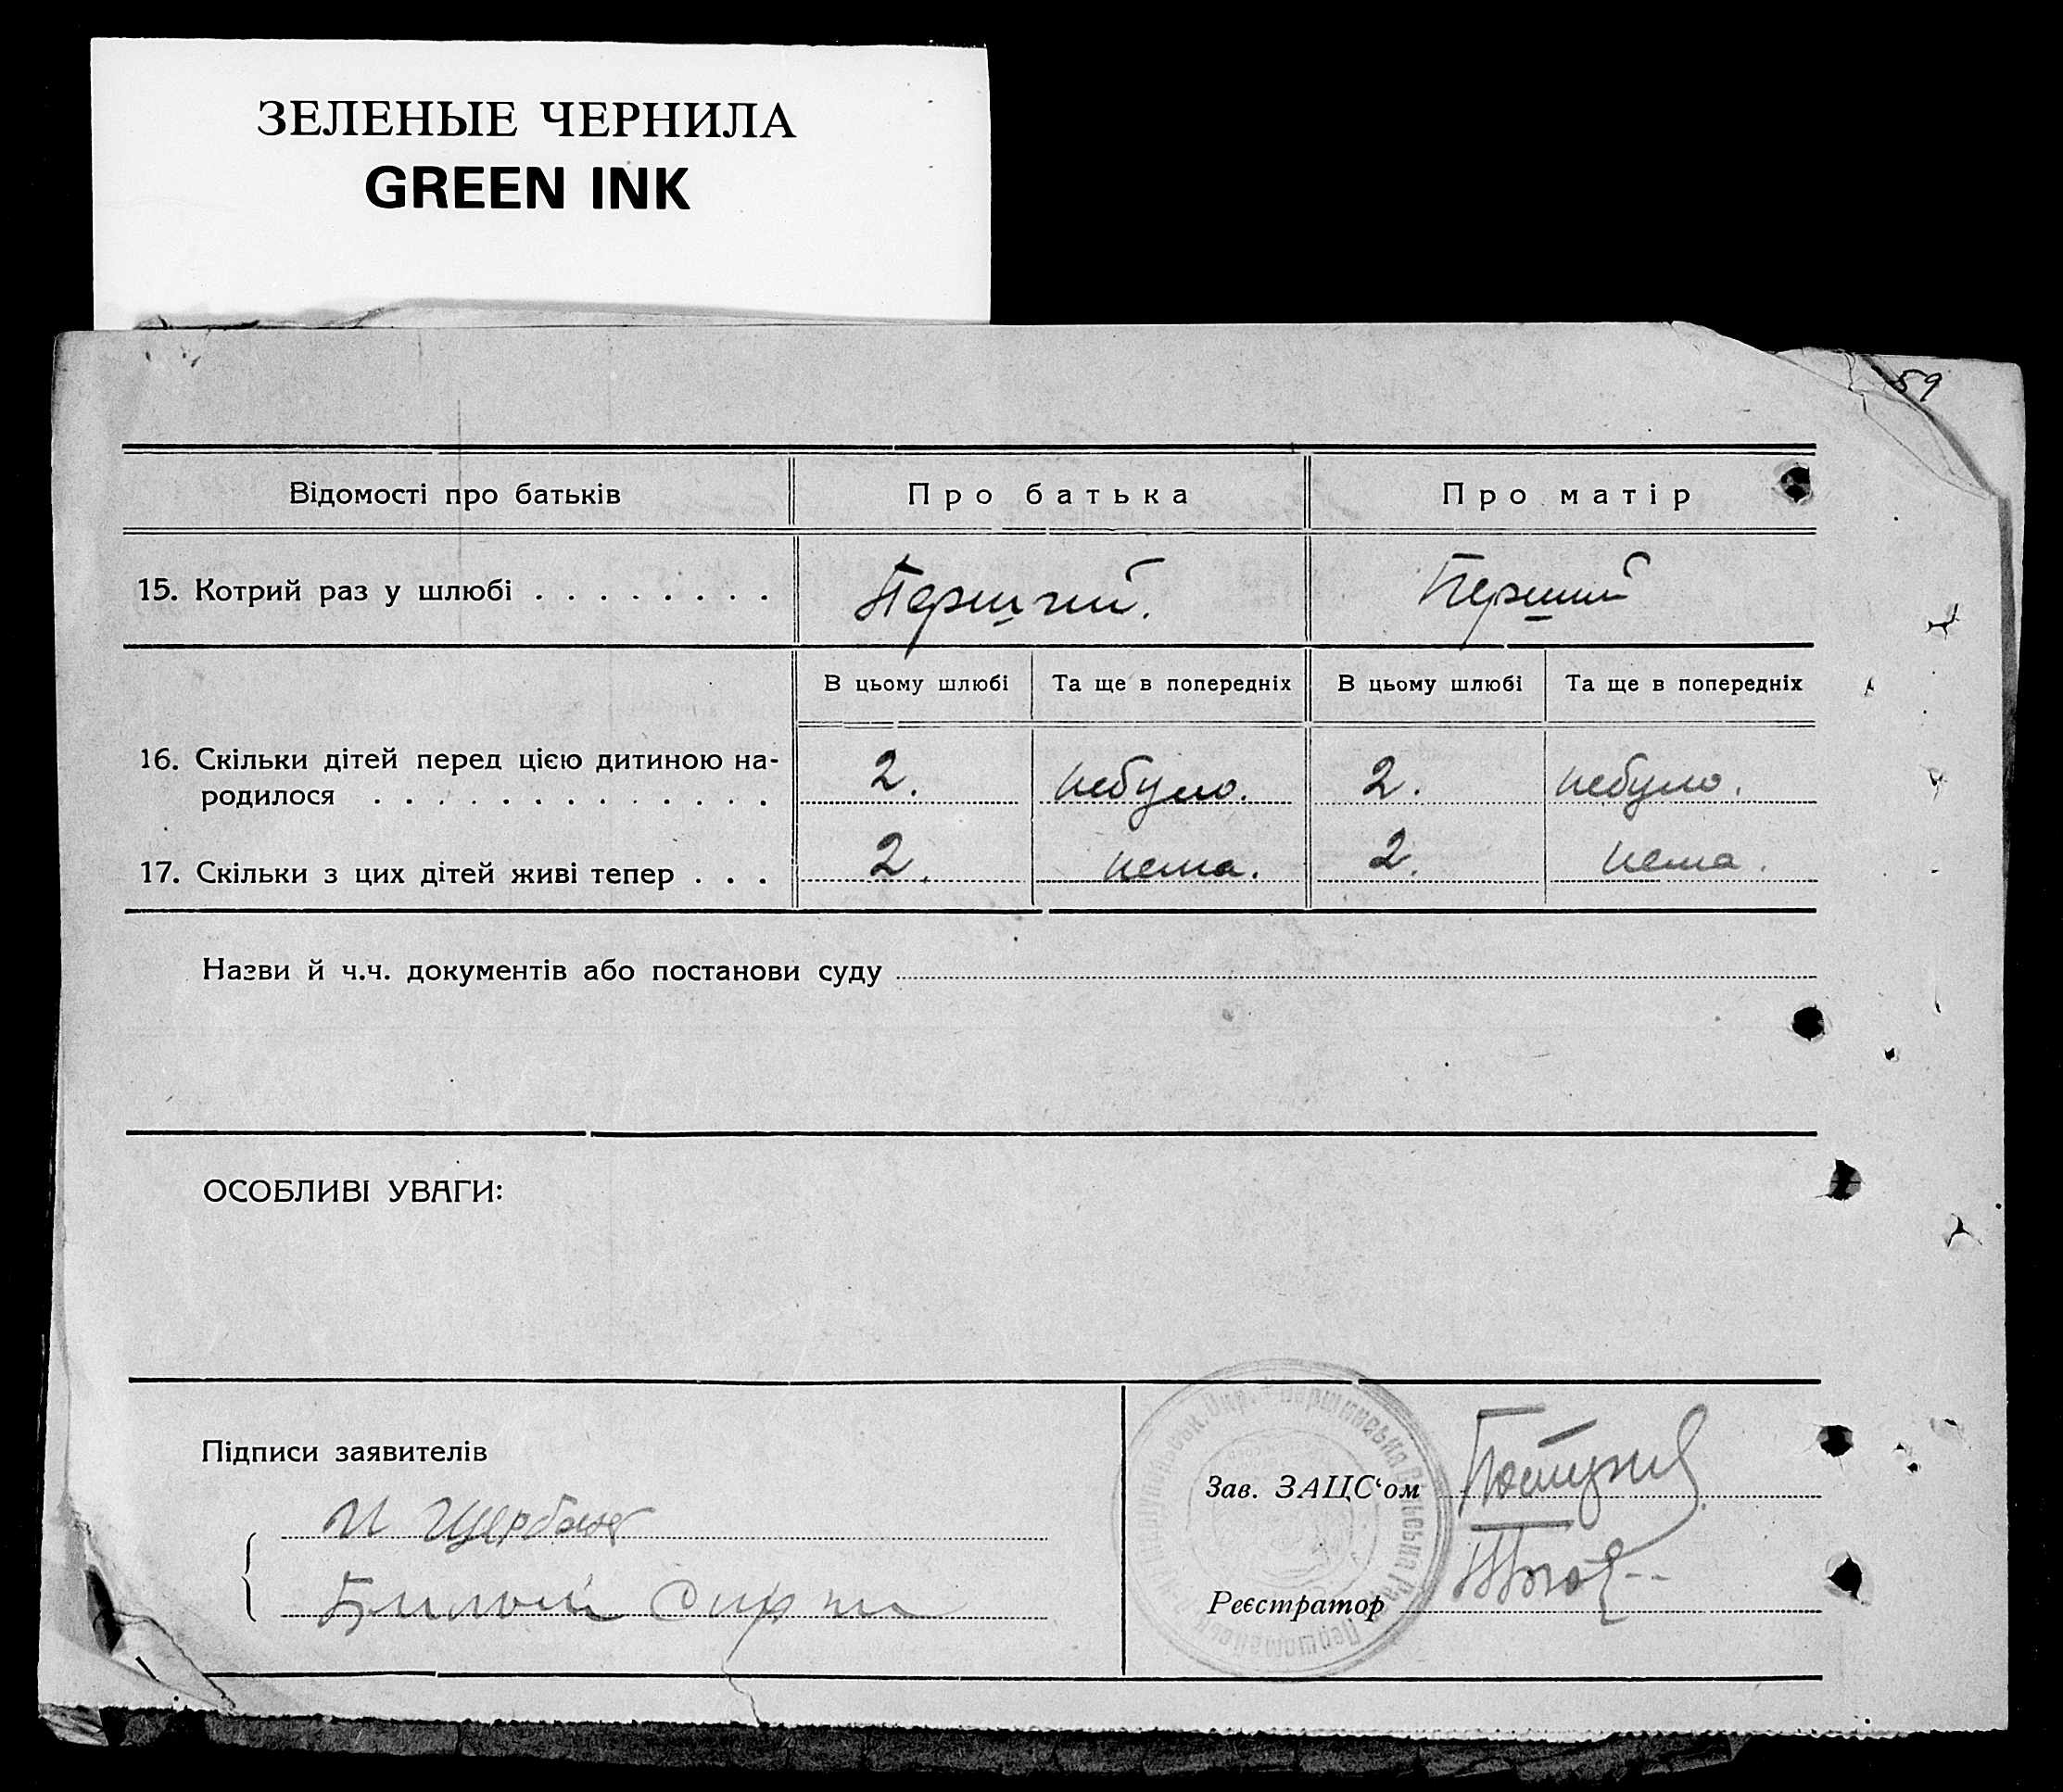 ЗЕЛЕНЫЕ ЧЕРНИЛА
GREEN INK
59
Відомості про батьків Про батька Про матір
15. Котрий раз у шлюбі . . . . . . . . Перший. Перший
В цьому шлюбі Та ще в попередніх В цьому шлюбі Та ще в попередніх
16. Скільки дітей перед цією дитиною на-
родилося . . . . . . . . . . . . . 2. небуло. 2. небуло.
17. Скільки з цих дітей живі тепер . . . 2. нема. 2. нема.
Назви й ч.ч. документів або постанови суду
ОСОБЛИВІ УВАГИ:
Підписи заявителів
И Щербан
Зав. ЗАЦС‘ом
Реєстратор
Сільська Рада Першотравенськ